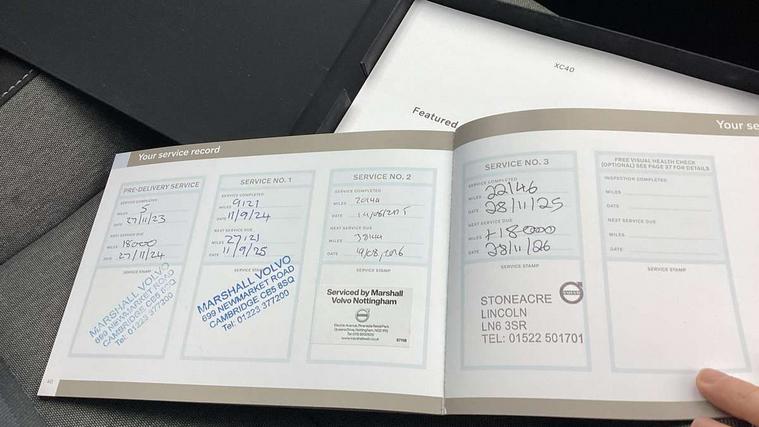 XC40
Featured
Your service record
Your se
PRE-DELIVERY SERVICE
SERVICE COMPLETED
MILES 5
DATE 27/11/23
NEXT SERVICE DUE
MILES 18000
DATE 27/11/24
SERVICE STAMP
MARSHALL VOLVO
699 NEWMARKET ROAD
CAMBRIDGE CB5 8SQ
Tel: 01223 377200
SERVICE NO. 1
SERVICE COMPLETED
MILES 9121
DATE 11/9/24
NEXT SERVICE DUE
MILES 27121
DATE 11/9/25
SERVICE STAMP
MARSHALL VOLVO
699 NEWMARKET ROAD
CAMBRIDGE CB5 8SQ
Tel: 01223 377200
SERVICE NO. 2
SERVICE COMPLETED
MILES 20144
DATE
NEXT SERVICE DUE
MILES 38144
DATE
SERVICE STAMP
Serviced by Marshall
Volvo Nottingham
SERVICE NO. 3
SERVICE COMPLETED
MILES 22146
DATE 28/11/25
NEXT SERVICE DUE
MILES +18000
DATE 28/11/26
SERVICE STAMP
VOLVO
STONEACRE
LINCOLN
LN6 3SR
TEL: 01522 501701
FREE VISUAL HEALTH CHECK
(OPTIONAL) SEE PAGE 37 FOR DETAILS
INSPECTION COMPLETED
MILES
DATE
NEXT SERVICE DUE
MILES
DATE
SERVICE STAMP
40